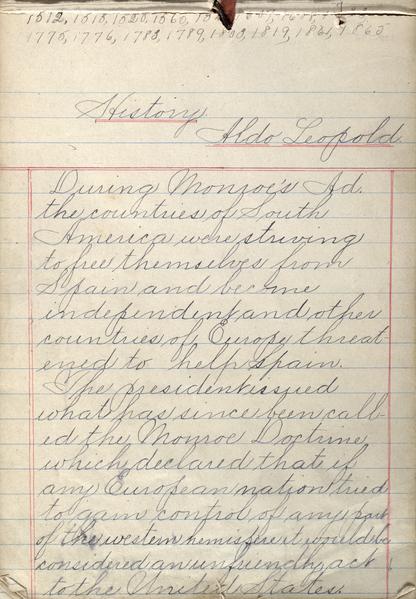 1512, 1513, 1520, 1565,
1775, 1776, 1783, 1789, 1803, 1819, 1861, 1865
History
Aldo Leopold.
During Monroe's Ad.
the countries of South
America were striving
to free themselves from
Spain and become
independent and other
countries of Europe threat-
ened to help Spain.
The president issued
what has since been call-
ed the Monroe Doctrine
which declared that if
any European nation tried
to gain control of any part
of the western hemispere it would be
considered an unfriendly act
to the United States.